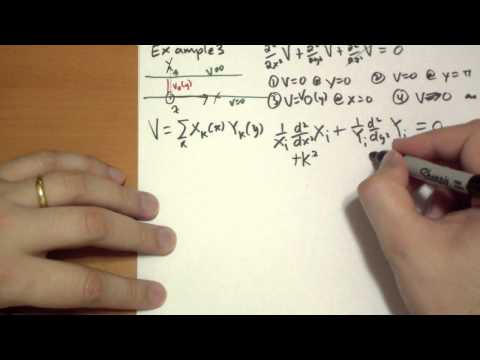 Example 3
∂²/∂x² V + ∂²/∂y² V + ∂²/∂z² V = 0
V=0
V₀(y)
V=0
z
① V=0 @ y=0 ② V=0 @ y=π
③ V=V₀(y) @ x=0 ④ V→0 as
V = Σ_k X_k(x) Y_k(y) 1/X_i d²/dx² X_i + 1/Y_i d²/dy² Y_i = 0
+k²
Sharpie